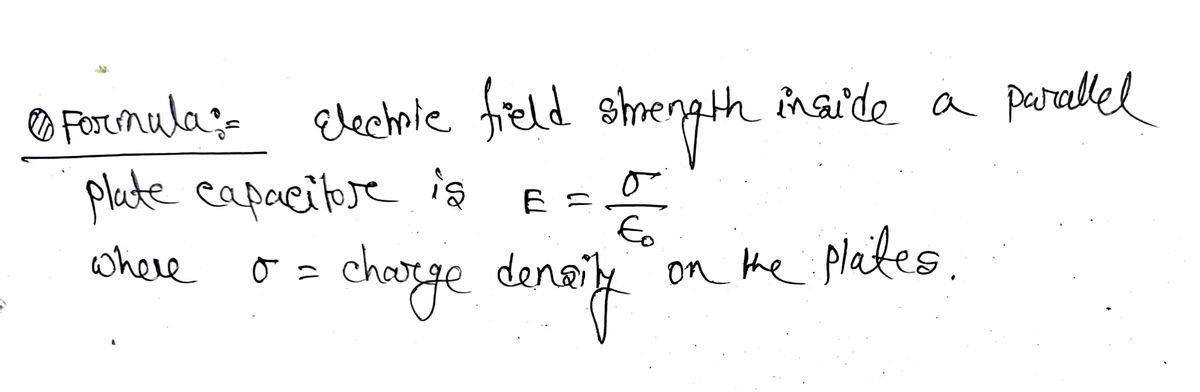 Formula:= Electric field strength inside a parallel
plate capacitore is E = σ/ϵ₀
where σ = charge density on the plates.